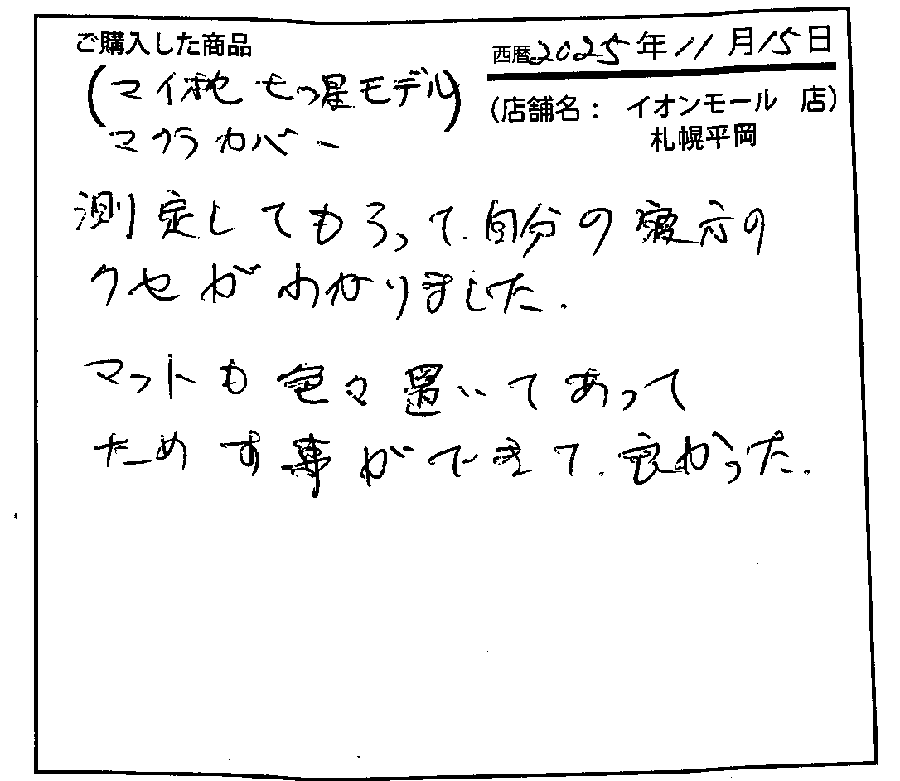 ご購入した商品
西暦2025年11月15日
(マイ枕 七つ星モデル)
マクラカバー
(店舗名: イオンモール 店)
札幌平岡
測定してもらって、自分の寝方の
クセがわかりました。
マットも色々置いてあって
ためす事ができて、良かった。